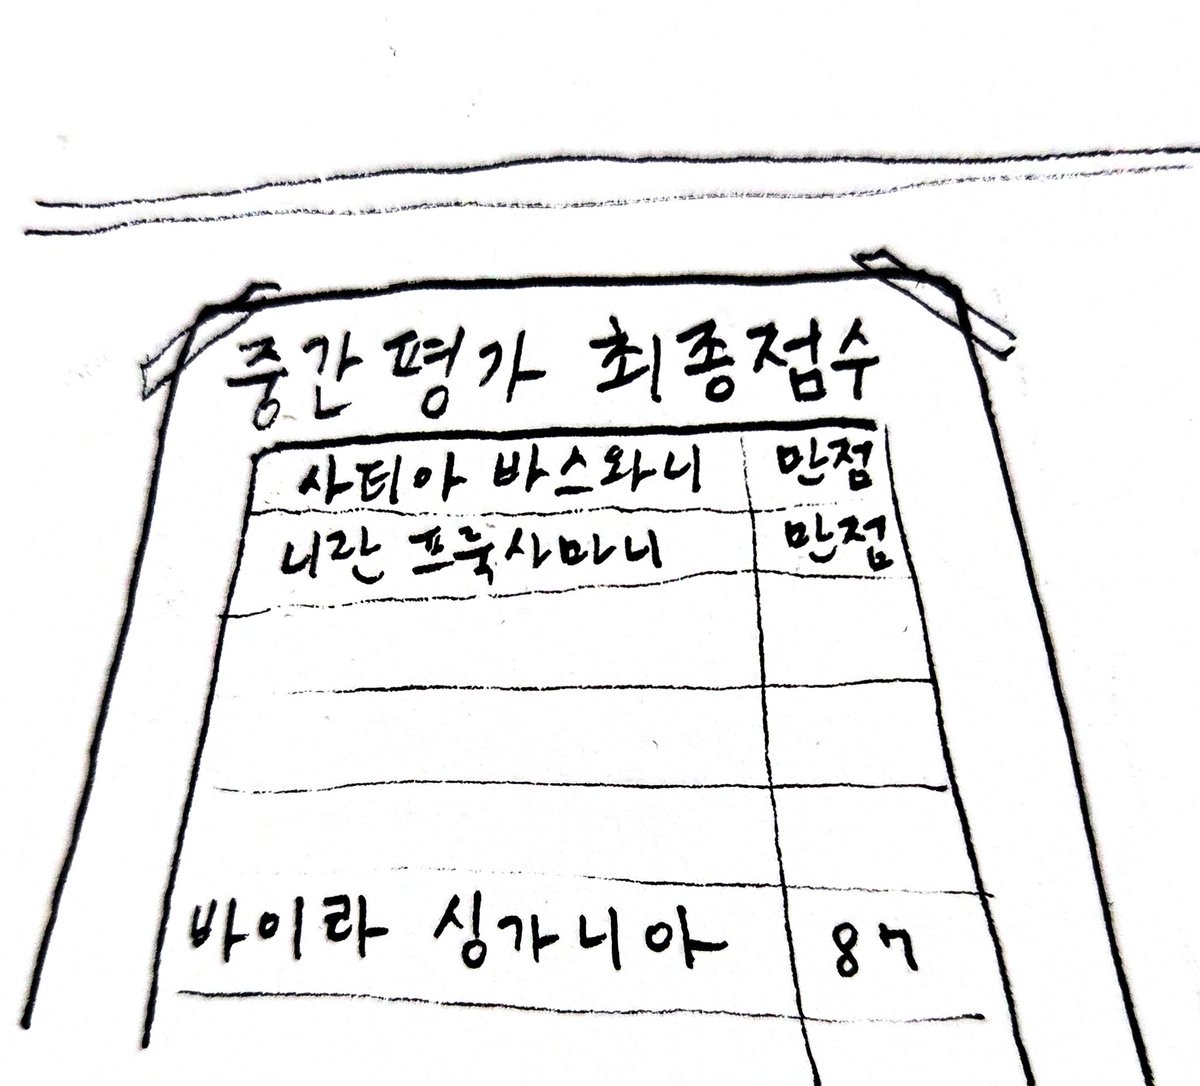 중간평가 최종점수
사티아 바스와니 만점
니란 프룩사마니 만점
바이라 싱가니아 87